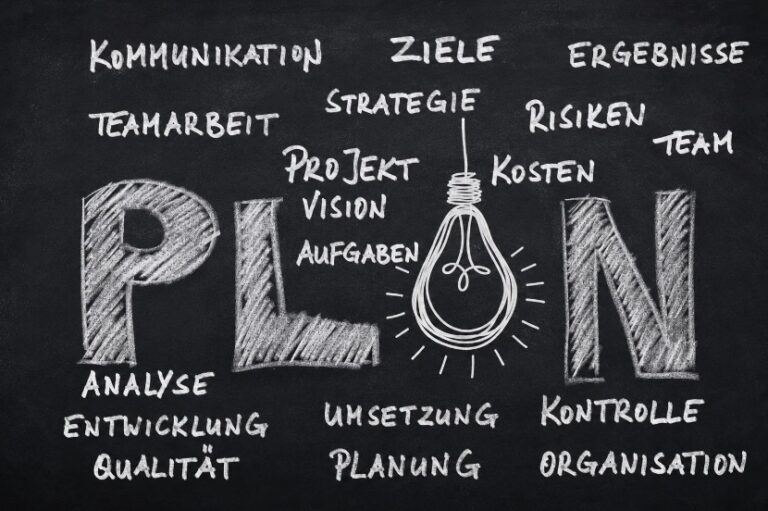 KOMMUNIKATION
ZIELE
ERGEBNISSE
STRATEGIE
TEAMARBEIT
RISIKEN
TEAM
PROJEKT
KOSTEN
VISION
AUFGABEN
PL N
ANALYSE
ENTWICKLUNG
QUALITÄT
UMSETZUNG
PLANUNG
KONTROLLE
ORGANISATION